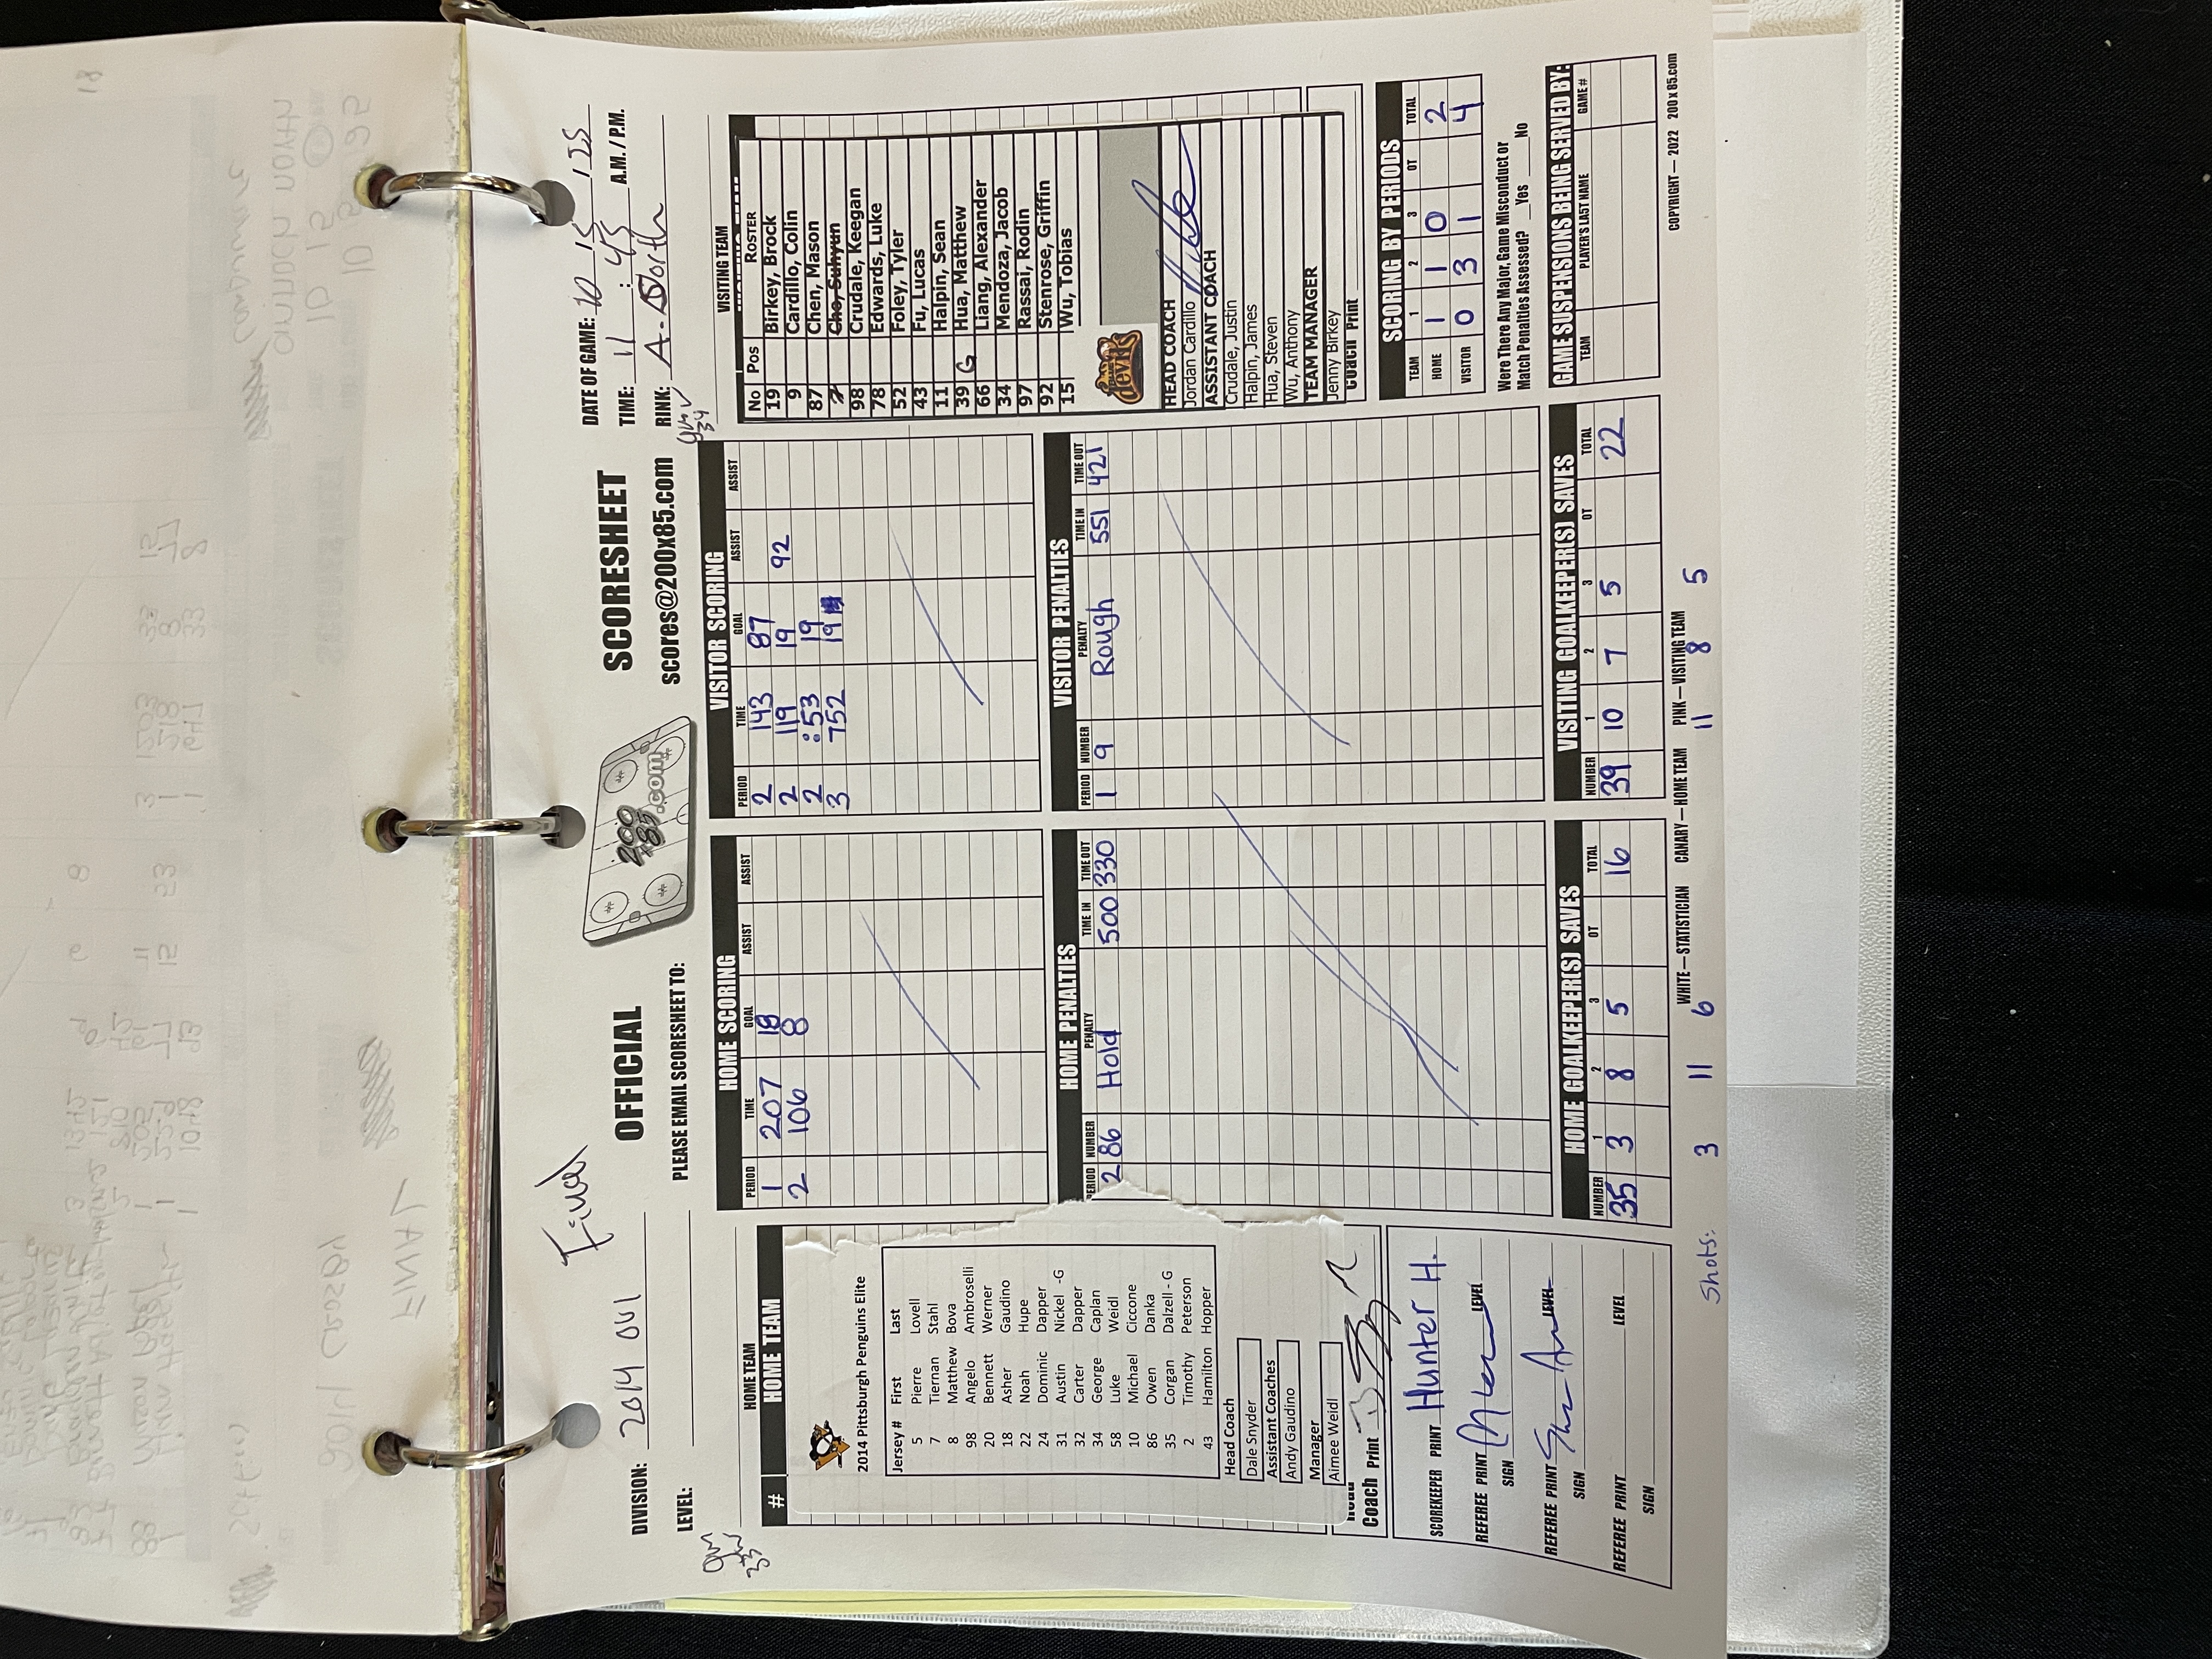 Final
OFFICIAL SCORESHEET
PLEASE EMAIL SCORESHEET TO: scores@200x85.com
200 x 85 .com
DIVISION: 2014
LEVEL:
DATE OF GAME: 10 / 15 / 25
TIME: 11 : 45 A.M. / P.M.
RINK:
HOME TEAM
# HOME TEAM
2014 Pittsburgh Penguins Elite
Jersey # First Last
5 Pierre Lovell
7 Tiernan Stahl
8 Matthew Bova
98 Angelo Ambroselli
20 Bennett Werner
18 Asher Gaudino
22 Noah Hupe
24 Dominic Dapper
31 Austin Nickel -G
32 Carter Dapper
34 George Caplan
58 Luke Weidl
10 Michael Ciccone
86 Owen Danka
35 Corgan Dalzell - G
2 Timothy Peterson
43 Hamilton Hopper
Head Coach
Dale Snyder
Assistant Coaches
Andy Gaudino
Manager
Aimee Weidl
Coach Print
SCOREKEEPER PRINT Hunter H.
REFEREE PRINT LEVEL
SIGN
REFEREE PRINT LEVEL
SIGN
REFEREE PRINT LEVEL
SIGN
HOME SCORING
PERIOD TIME GOAL ASSIST ASSIST
1 207 18
2 106 8
HOME PENALTIES
PERIOD NUMBER PENALTY TIME IN TIME OUT
2 86 Hold 500 330
HOME GOALKEEPER(S) SAVES
NUMBER 1 2 3 OT TOTAL
35 3 8 5 16
VISITOR SCORING
PERIOD TIME GOAL ASSIST ASSIST
2 143 87
2 119 19 92
2 :53 19
3 752 19
VISITOR PENALTIES
PERIOD NUMBER PENALTY TIME IN TIME OUT
1 9 Rough 551 421
VISITING GOALKEEPER(S) SAVES
NUMBER 1 2 3 OT TOTAL
39 10 7 5 22
VISITING TEAM
No Pos ROSTER
19 Birkey, Brock
9 Cardillo, Colin
87 Chen, Mason
Cho, Suhyun
98 Crudale, Keegan
78 Edwards, Luke
52 Foley, Tyler
43 Fu, Lucas
11 Halpin, Sean
39 G Hua, Matthew
66 Liang, Alexander
34 Mendoza, Jacob
97 Rassai, Rodin
92 Stenrose, Griffin
15 Wu, Tobias
devils
HEAD COACH
Jordan Cardillo
ASSISTANT COACH
Crudale, Justin
Halpin, James
Hua, Steven
Wu, Anthony
TEAM MANAGER
Jenny Birkey
Coach Print
SCORING BY PERIODS
TEAM 1 2 3 OT TOTAL
HOME 1 1 0 2
VISITOR 0 3 1 4
Were There Any Major, Game Misconduct or
Match Penalties Assessed? Yes No
GAME SUSPENSIONS BEING SERVED BY:
TEAM PLAYER'S LAST NAME GAME #
WHITE — STATISTICIAN CANARY — HOME TEAM PINK — VISITING TEAM
COPYRIGHT — 2022 200x85.com
Shots: 3 11 6 11 8 5